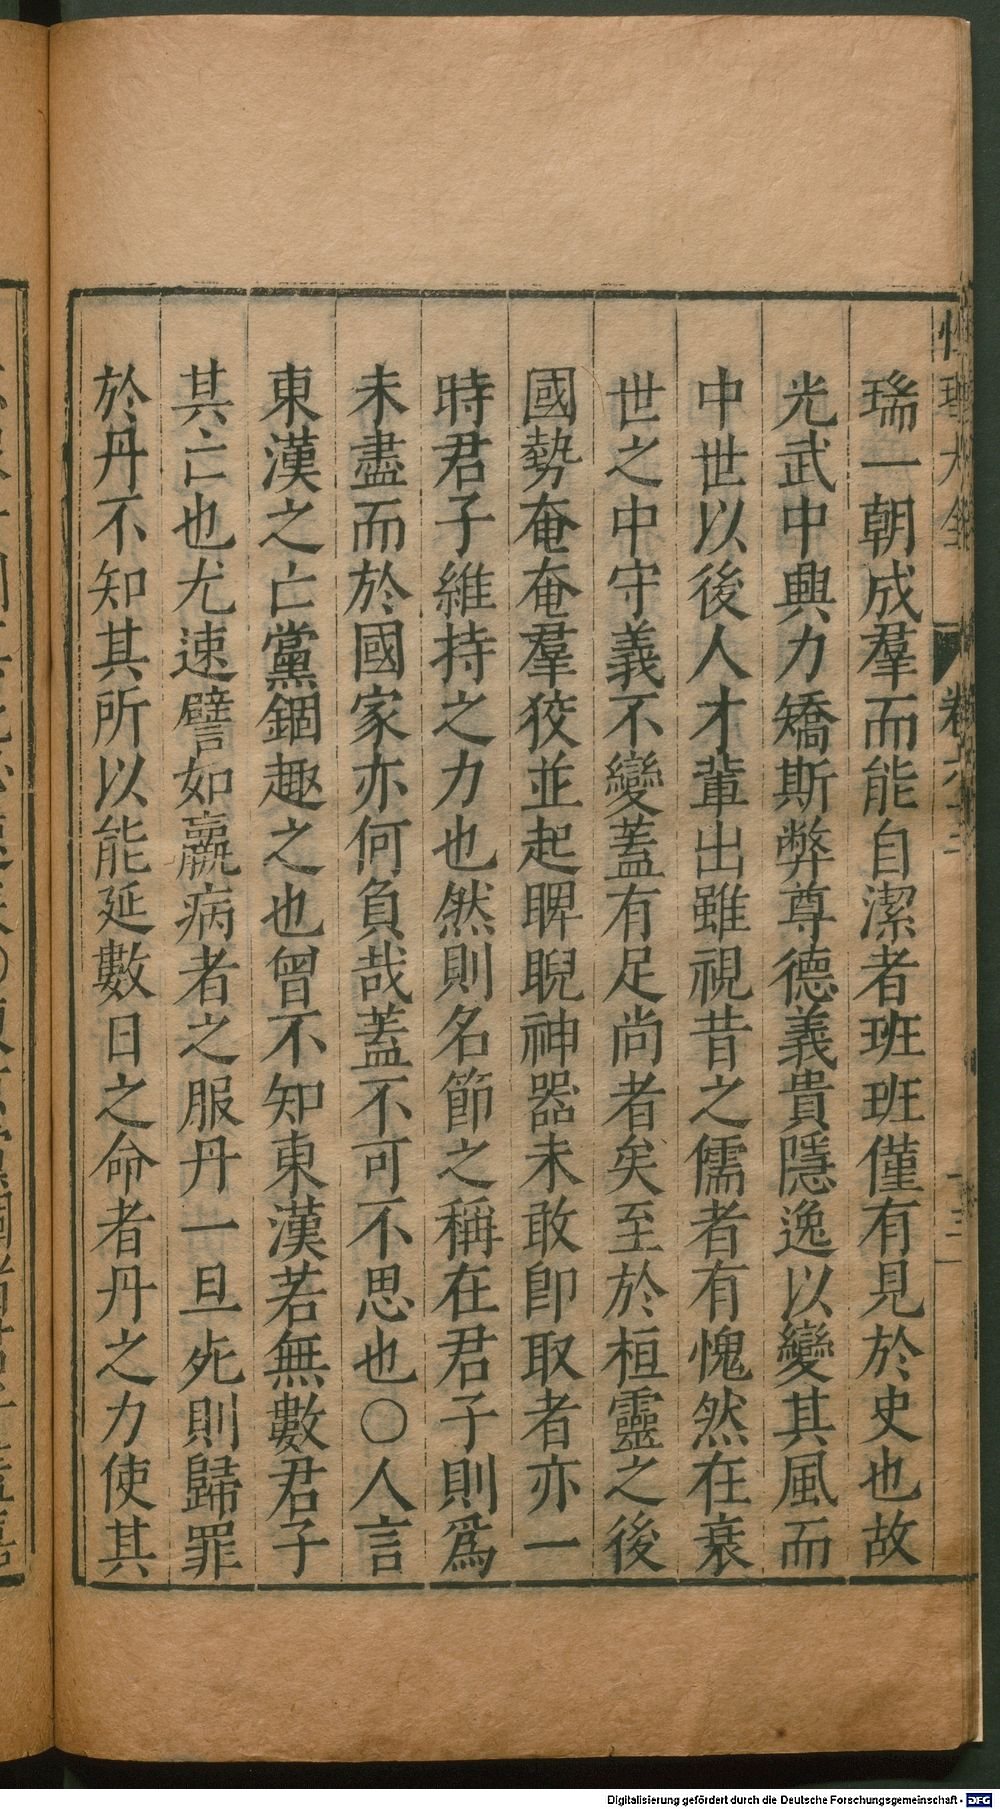 瑞一朝成羣而能自潔者班班僅有見於史也故
光武中興力矯斯弊尊德義貴隱逸以變其風而
中世以後人才輩出雖視昔之儒者有愧然在衰
世之中守義不變蓋有足尚者矣至於桓靈之後
國勢奄奄羣狡並起睥睨神器未敢卽取者亦一
時君子維持之力也然則名節之稱在君子則爲
未盡而於國家亦何負哉蓋不可不思也○人言
東漢之亡黨錮趣之也曾不知東漢若無數君子
其亡也尤速譬如羸病者之服丹一旦死則歸罪
於丹不知其所以能延數日之命者丹之力使其
Digitalisierung gefördert durch die Deutsche Forschungsgemeinschaft - DFG